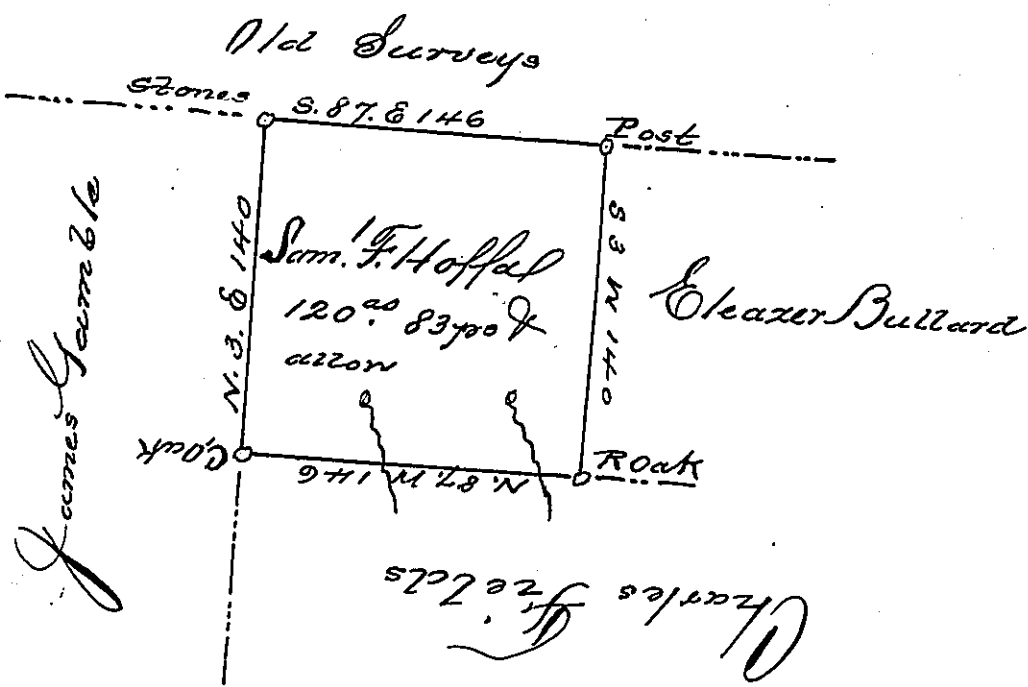 Old Surveys
Stones
S. 87. E 146
Post
James Gamble
N. 3. E 140
Sam.ˡ F. Hoffal
120ᵃˢ. 83 prs &
allow
S 3 W 140
Eleazer Bullard
C,Oak
N. 87. W 146
R Oak
Charles